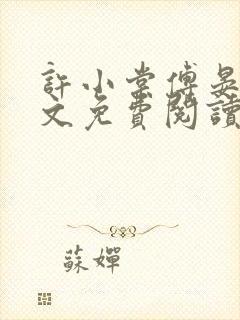 許小棠傅晏
文免費閱讀
蘇嬋